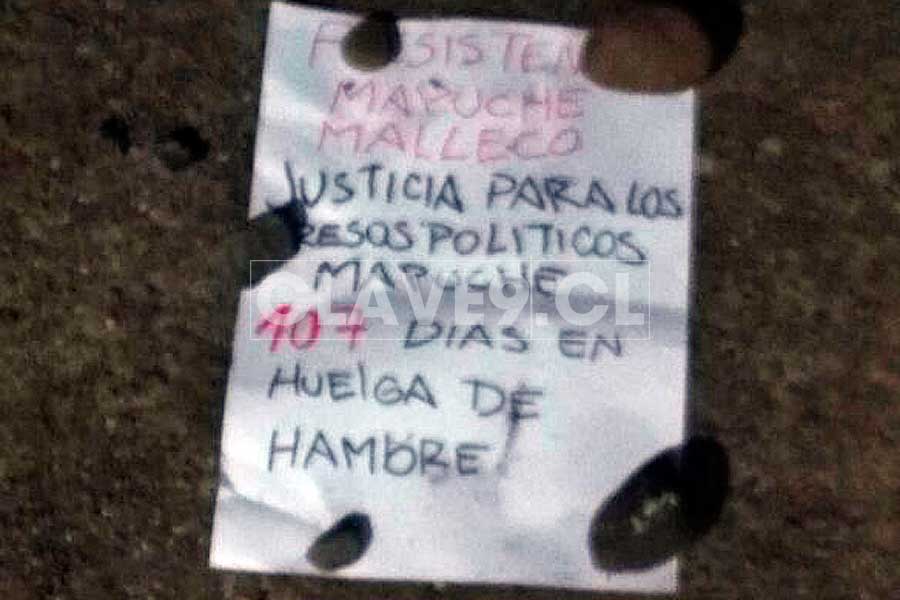 MAPUCHE
MALLECO
JUSTICIA PARA LOS
RESOS POLITICOS
MAPUCHE
CLAVE9.CL
107 DIAS EN
HUELGA DE
HAMBRE